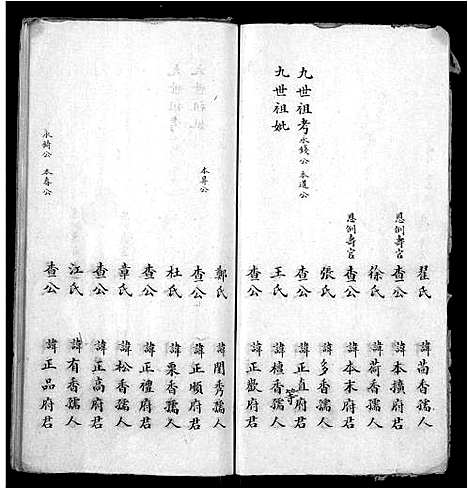 翟氏 諱蒿香孺人
恩例壽官 查公 諱本擴府君
徐氏 諱荷香孺人
恩例壽官 查公 諱本末府君
張氏 諱多香孺人
九世祖考 永錢公 本道公 查公 諱正直府君 等
九世祖妣 王氏 諱檀香孺人
查公 諱正歡府君
鄭氏 諱閏秀孺人
本昇公 查公 諱正順府君
杜氏 諱果香孺人
查公 諱正禮府君
章氏 諱松香孺人
查公 諱正高府君
江氏 諱有香孺人
永錡公 本春公 查公 諱正品府君